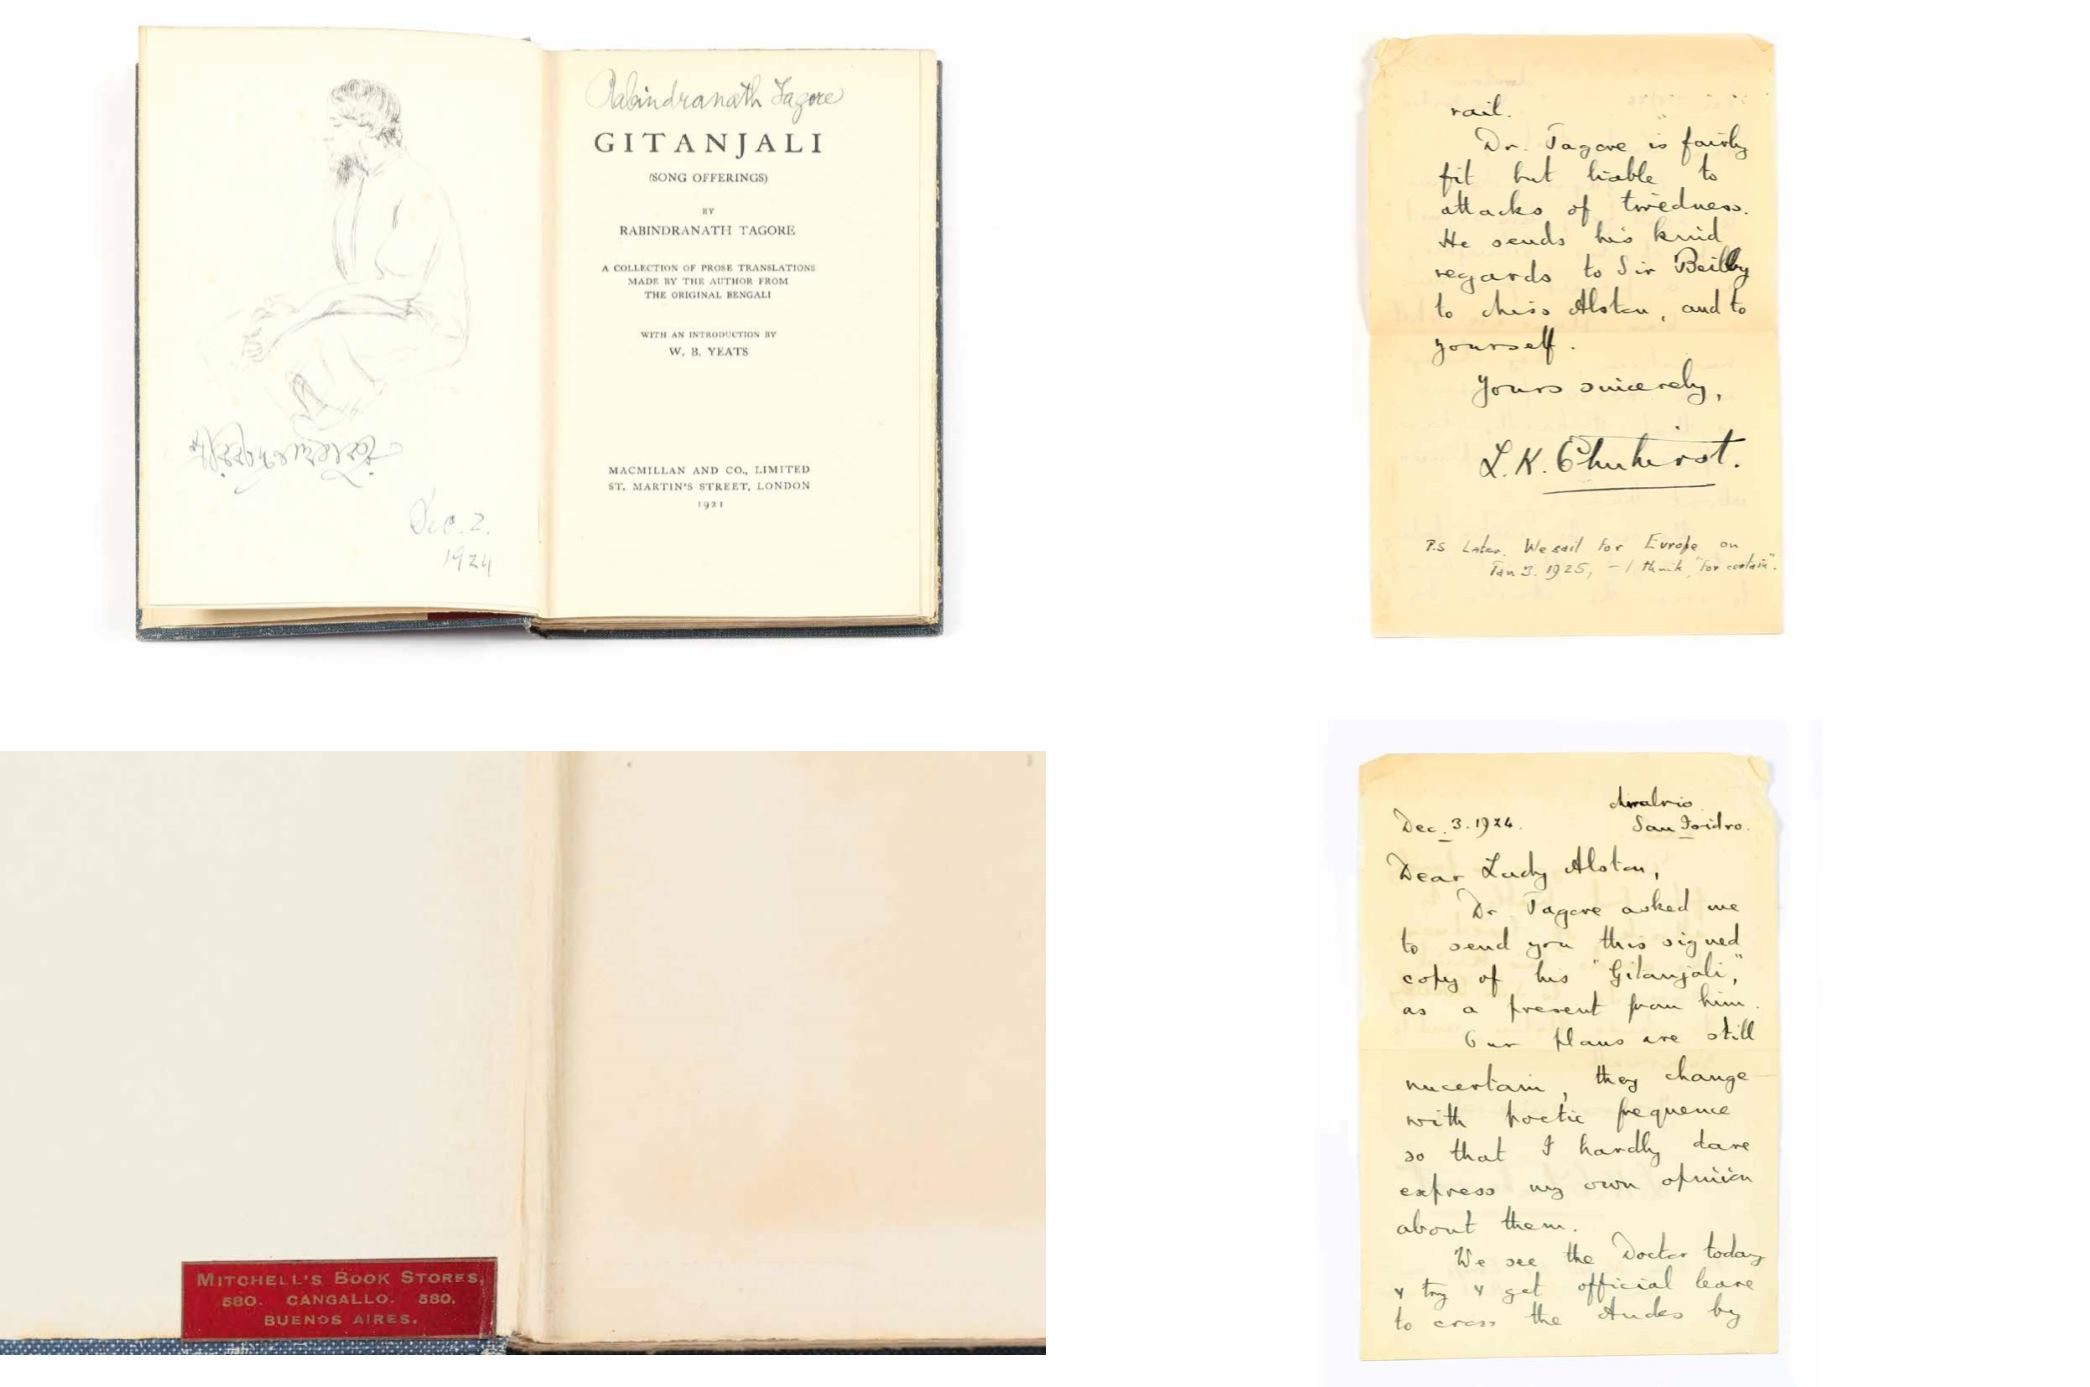 Rabindranath Tagore
GITANJALI
(SONG OFFERINGS)
BY
RABINDRANATH TAGORE
A COLLECTION OF PROSE TRANSLATIONS
MADE BY THE AUTHOR FROM
THE ORIGINAL BENGALI
WITH AN INTRODUCTION BY
W. B. YEATS
MACMILLAN AND CO., LIMITED
ST. MARTIN'S STREET, LONDON
1921
শ্রীরবীন্দ্রনাথ ঠাকুর
Dec. 2.
1924
rail.
Dr. Tagore is fairly
fit but liable to
attacks of tiredness.
He sends his kind
regards to Sir Beilby
to Miss Alston, and to
yourself.
Yours sincerely,
L. K. Elmhirst.
P.S Later. We sail for Europe on
Jan 3. 1925, - I think, "for certain".
MITCHELL'S BOOK STORES,
580. CANGALLO. 580.
BUENOS AIRES.
Miralrio
Dec. 3. 1924. San Isidro.
Dear Lady Alston,
Dr Tagore asked me
to send you this signed
copy of his "Gitanjali,"
as a present from him.
Our plans are still
uncertain, they change
with poetic frequence
so that I hardly dare
express my own opinion
about them.
We see the Doctor today
& try & get official leave
to cross the Andes by